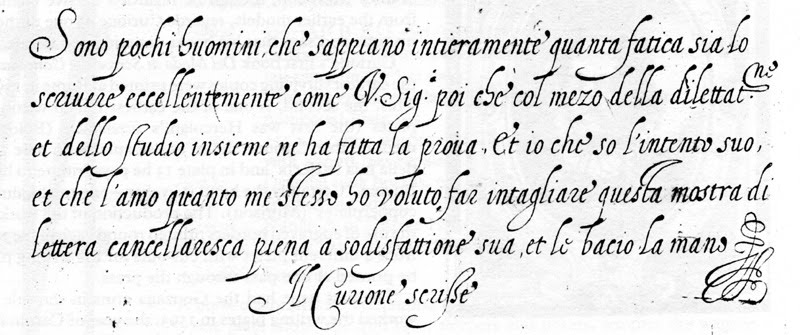 Sono pochi huomini, che sappiano intieramente quanta fatica sia lo
scrivere eccellentemente come V. Sig.ª poi che col mezo della dilettat.ne
et dello studio insieme ne ha fatta la proua, Et io che so l'intento suo,
et che l'amo quanto me stesso ho voluto far intagliare questa mostra di
lettera cancellaresca piena a sodisfattione sua, et le bacio la mano
Il Curione scrisse